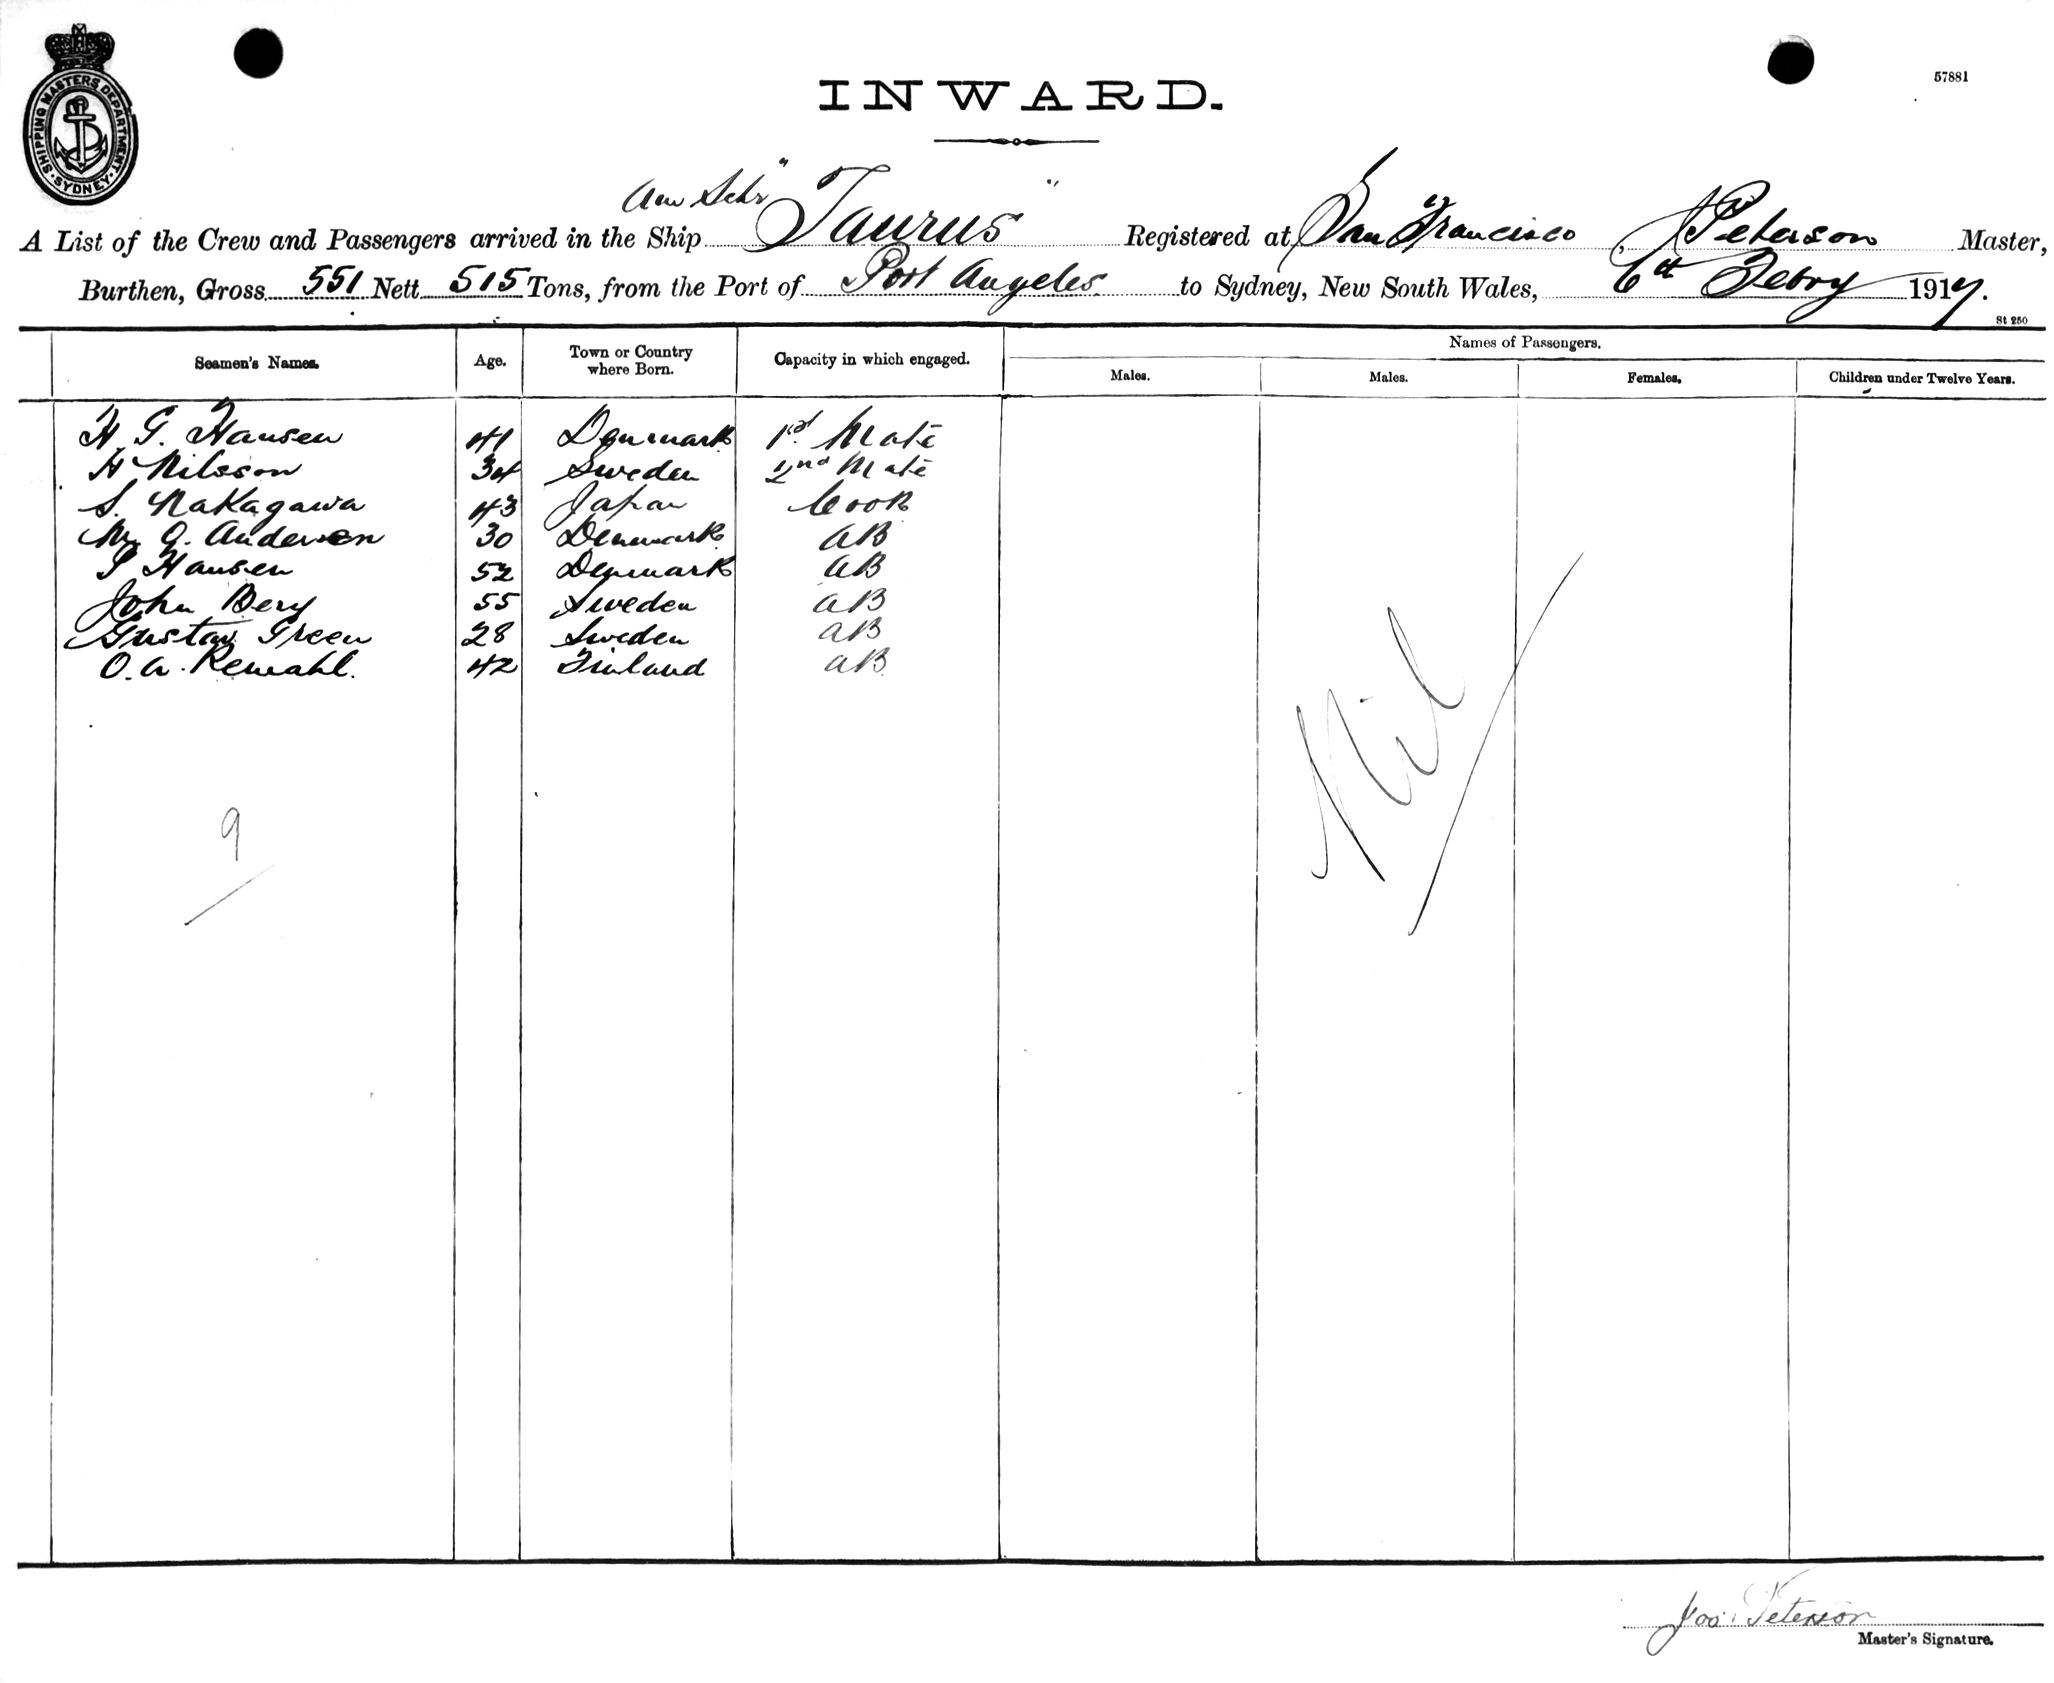 SHIPPING MASTERS DEPARTMENT · SYDNEY ·
57881
INWARD.
Am Schr "Taurus"
A List of the Crew and Passengers arrived in the Ship Registered at San Francisco, J Peterson Master,
Burthen, Gross 551 Nett 515 Tons, from the Port of Port Angeles to Sydney, New South Wales, 6th Febry 1917.
St 250
Seamen's Names. Age. Town or Country where Born. Capacity in which engaged. Names of Passengers.
Males. Males. Females. Children under Twelve Years.
H. G. Hansen 41 Denmark 1st Mate
H Nilsson 34 Sweden 2nd Mate
S. Nakagawa 43 Japan Cook
G. Andersen 30 Denmark AB
S Hansen 52 Denmark AB
John Berg 55 Sweden AB
Gustav Green 28 Sweden AB
O. A. Rewahl. 42 Finland AB
Nil
9
Jos. Peterson
Master's Signature.